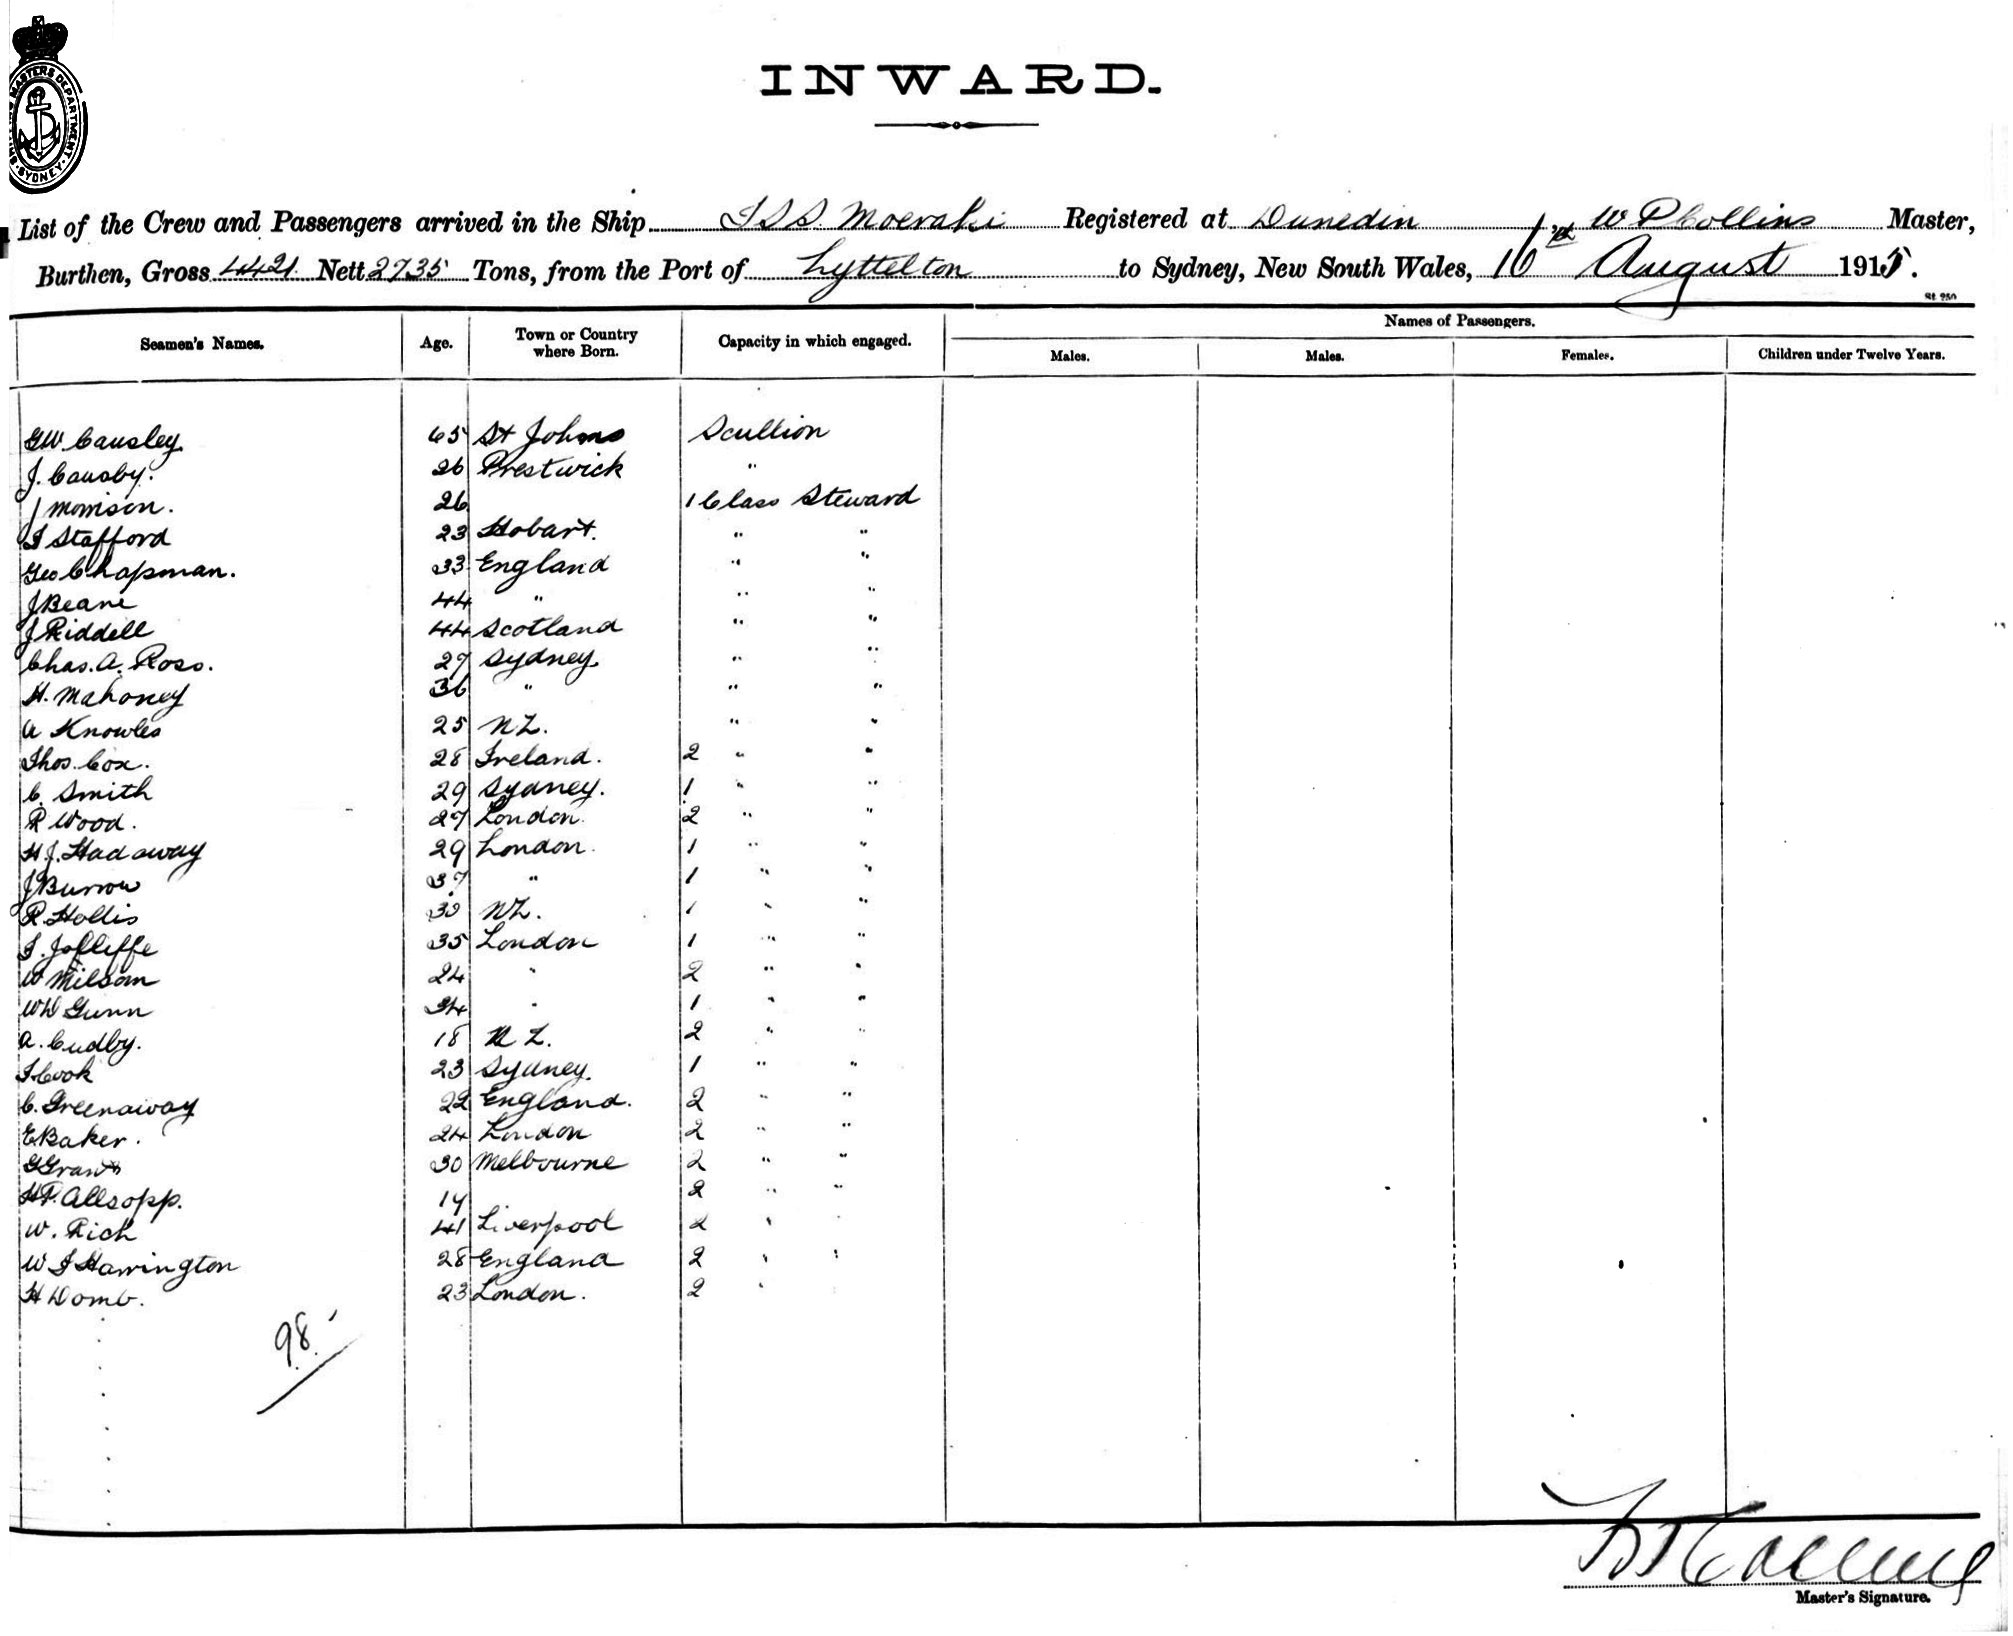 SHIPPING MASTERS DEPARTMENT. SYDNEY.
INWARD.
List of the Crew and Passengers arrived in the Ship TSS. Moeraki Registered at Dunedin W P Collins Master,
Burthen, Gross 4421 Nett 2735 Tons, from the Port of Lyttelton to Sydney, New South Wales, 16 August 1915.
Seamen's Names. Age. Town or Country where Born. Capacity in which engaged. Names of Passengers.
Males. Males. Females. Children under Twelve Years.
GW Causley 65 St Johns Scullion
J. Causby. 26 Prestwick "
J Morrison. 26 1 Class Steward
Stafford 23 Hobart. " "
Geo Chapman. 33 England " "
J Beane 44 " " "
J Riddell 44 Scotland " "
Chas. A. Ross. 27 Sydney. " "
H. Mahoney 36 " " "
A Knowles 25 NZ. " "
Thos. Cox. 28 Ireland. 2 " "
C. Smith 29 Sydney. 1 " "
R Wood. 27 London. 2 " "
H.J. Hadaway 29 London. 1 " "
J Burrow 37 " 1 " "
R. Hollis NZ. 1 " "
Jolliffe 35 London 1 " "
W Milsom 24 " 2 " "
WD Gunn 34 " 1 " "
A. Cudby. 18 N Z. 2 " "
Cook 23 Sydney. 1 " "
C. Greenaway 22 England. 2 " "
E Baker. 24 London 2 " "
G Grant 30 Melbourne 2 " "
Allsopp. 2 " "
W. Rich 41 Liverpool 2 " "
Harrington 28 England 2 " "
H Domb. 23 London. 2 "
98
Collins
Master's Signature.